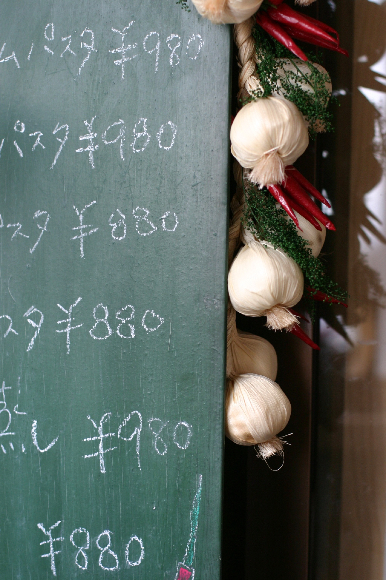 ムパスタ ¥980
パスタ ¥980
パスタ ¥880
スタ ¥880
蒸し ¥980
¥880